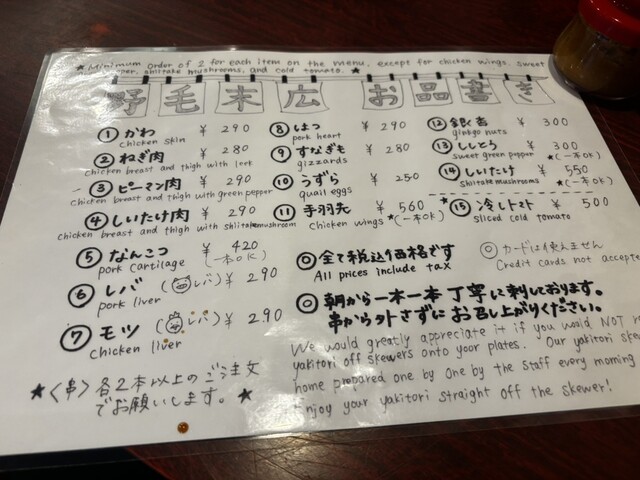 ★Minimum order of 2 for each item on the menu, except for chicken wings, sweet
pepper, shiitake mushrooms, and cold tomato. ★
野毛末広 お品書き
① かわ ¥ 290
chicken skin
② ねぎ肉 ¥ 280
chicken breast and thigh with leek
③ ピーマン肉 ¥ 290
chicken breast and thigh with green pepper
④ しいたけ肉 ¥ 290
chicken breast and thigh with shiitake mushroom
⑤ なんこつ ¥ 420
pork cartilage (一本OK)
⑥ レバ (レバ) ¥ 290
pork liver
⑦ モツ (レバ) ¥ 290
chicken liver
★〈串〉各2本以上のご注文
でお願いします。★
⑧ はつ ¥ 290
pork heart
⑨ すなぎも ¥ 280
gizzards
⑩ うずら ¥ 250
quail eggs
⑪ 手羽先 ¥ 560
chicken wings ★(一本OK)
⑫ 銀杏 ¥ 300
ginkgo nuts
⑬ ししとう ¥ 300
sweet green pepper ★(一本OK)
⑭ しいたけ ¥ 550
Shiitake mushrooms ★(一本OK)
★⑮ 冷しトマト ¥ 500
sliced cold tomato
◎ 全て税込価格です
All prices include tax
◎ カードは使えません
Credit cards not accepte
◎ 朝から一本一本丁寧に刺しております。
串から外さずにお召し上がりください。
We would greatly appreciate it if you would NOT
yakitori off skewers onto your plates. Our yakitori
home prepared one by one by the staff every morning
Enjoy your yakitori straight off the skewer!